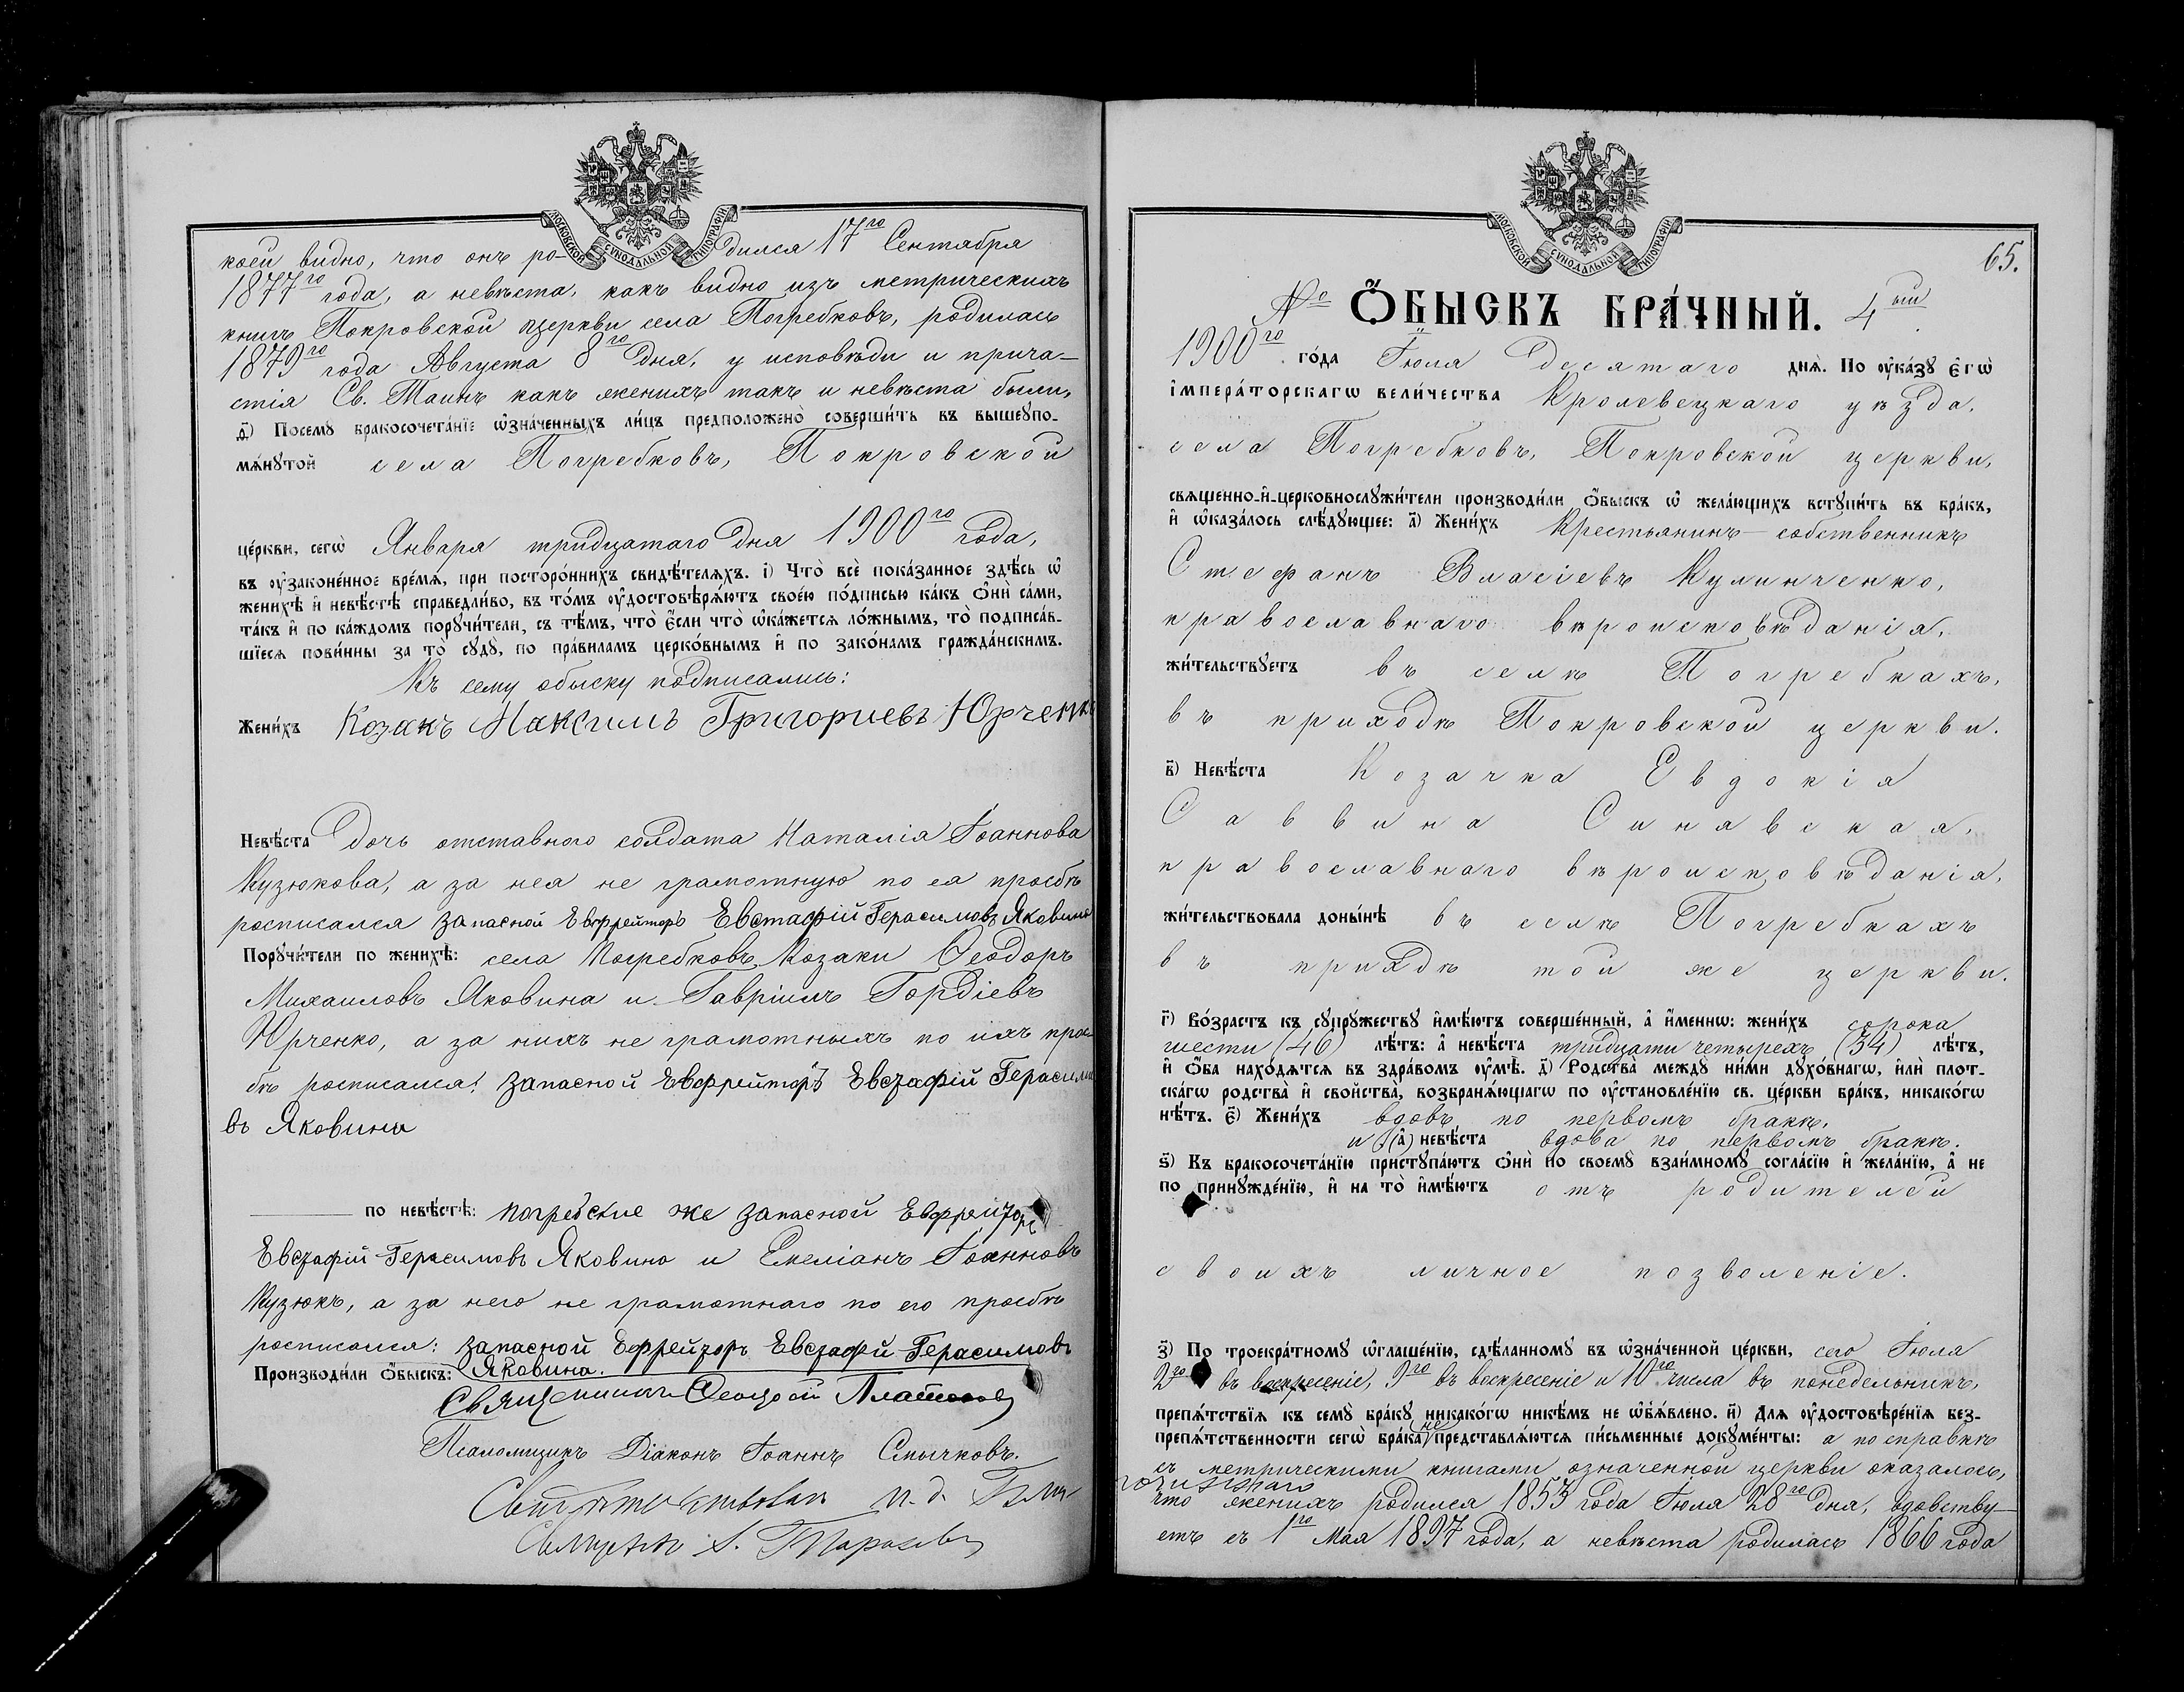 МОСКОВСКОЙ СѴНОДАЛЬНОЙ ТИПОГРАФІИ
коей видно, что онъ ро-дился 17го Сентября
1877го года, а невѣста, какъ видно изъ метрическихъ
книгъ Покровской церкви села Погребковъ, родилась
1879го года Августа 8го дня, у исповѣди и прича-
стія Св. Таинъ какъ женихъ такъ и невѣста были,
д҃) Посемꙋ бракосочета́нїе ѡ҆зна́ченныхъ ли́цъ предположено̀ соверши́ть въ вышеꙋпо-
мѧ́нꙋтой села Погребковъ, Покровской
це́ркви, сегѡ̀ Января тридцатаго дня 1900го года,
въ ᲂу҆зако́ненное вре́мѧ, при посторо́ннихъ свидѣ́телѧхъ. і҃) Что̀ всѐ пока́занное здѣ́сь ѡ҆
женихѣ̀ и҆ невѣ́стѣ справедли́во, въ то́мъ ᲂу҆достовѣрѧ́ютъ свое́ю по́дписью ка́къ ѻ҆нѝ са́ми,
та́къ и҆ по ка́ждомъ порꙋчи́тели, съ тѣ́мъ, что̀ є҆́сли что̀ ѡ҆ка́жетсѧ ло́жнымъ, то̀ подписа́в-
шїесѧ пови́нны за то̀ сꙋдꙋ̀, по пра́виламъ церко́внымъ и҆ по зако́намъ гражда́нскимъ.
Къ сему обыску подписались:
Жени́хъ Козакъ Максимъ Григориевъ Юрченко
Невѣ́ста Дочь отставного солдата Наталія Іоаннова
Кузюкова, а за нея не грамотную по ея просьбѣ
росписался запасной Евфрейторъ Евстафій Герасимовъ Яковина
Порꙋчи́тели по женихѣ̀: села Погребковъ Козаки Ѳеодоръ
Михаиловъ Яковина и Гавріилъ Гордіевъ
Юрченко, а за нихъ не грамотныхъ по ихъ прось-
бѣ росписался: запасной Евфрейторъ Евстафій Герасимо
въ Яковина
по невѣ́стѣ: погребские же запасной Евфрейторъ
Евстафій Герасимовъ Яковино и Емеліанъ Іоанновъ
Кузюкъ, а за него не грамотнаго по его просьбѣ
росписался: запасной Ефрейторъ Евстафй Герасимовъ
Производи́ли ѻ҆́быскъ: Яковина.
Священникъ
Псаломщикъ Діаконъ Іоаннъ Смычковъ.
65.
МОСКОВСКОЙ СѴНОДАЛЬНОЙ ТИПОГРАФІИ
№ ѺБЫСКЪ БРА́ЧНЫЙ. 4ый
1900го го́да Іюля десятаго днѧ̀. По ᲂу҆ка́зꙋ є҆гѡ̀
і҆мпера́торскагѡ вели́чества Кролевецкаго уѣзда,
села Погребковъ, Покровской церкви,
свѧщенно-и҆-церковнослꙋжи́тели производи́ли ѻ҆́быскъ ѡ҆ жела́ющихъ вступи́ть въ бра́къ,
и҆ ѡ҆каза́лось слѣ́дꙋющее: а҃) Жени́хъ Крестьянинъ-собственникъ
Стефанъ Власіевъ Кулинченко,
православнаго вѣроисповѣданія,
жи́тельствꙋетъ въ селѣ Погребкахъ,
въ приходѣ Покровской церкви.
в҃) Невѣ́ста Козачка Евдокія
Саввина Синявская,
православнаго вѣроисповѣданія,
жи́тельствовала доны́нѣ въ селѣ Погребкахъ
въ приходѣ той же церкви.
г҃) Во́зрастъ къ сꙋпрꙋ́жествꙋ и҆мѣ́ютъ соверше́нный, а҆ и҆́меннѡ: жени́хъ сорока
шести (46) лѣ́тъ: а҆ невѣ́ста тридцати четырехъ (34) лѣ́тъ,
и҆ ѻ҆́ба нахо́дѧтсѧ въ здра́вомъ ᲂу҆мѣ̀. д҃) Родства̀ междꙋ̀ ни́ми дꙋхо́внагѡ, и҆лѝ плот-
ска́гѡ родства̀ и҆ свойства̀, возбранѧ́ющагѡ по ᲂу҆становле́нїю св. це́ркви бра́къ, никако́гѡ
нѣ́тъ. є҃) Жени́хъ вдовъ по первомъ бракѣ,
и (а҆) невѣ́ста вдова по первомъ бракѣ.
ѕ҃) Къ бракосочета́нїю пристꙋпа́ютъ ѻ҆нѝ по своемꙋ̀ взаи́мномꙋ согла́сїю и҆ жела́нїю, а҆ не
по принꙋжде́нїю, и҆ на то̀ и҆мѣ́ютъ отъ родителей
своихъ личное позволеніе.
з҃) По троекра́тномꙋ ѡ҆глаше́нїю, сдѣ́ланномꙋ въ ѡ҆зна́ченной це́ркви, сего Іюля
2го въ воскресеніе, 9го въ воскресеніе и 10го числа въ понедельникъ,
препѧ́тствїѧ къ семꙋ̀ бра́кꙋ никако́гѡ никѣ́мъ не ѡ҆б̾ѧ́влено. и҃) Длѧ ᲂу҆достовѣре́нїѧ без-
препѧ́тственности сегѡ̀ бра́ка не представлѧ́ютсѧ пи́сьменные докꙋме́нты: а по справкѣ
съ метрическими книгами означенной церкви оказалось,
что женихъ родился 1853 года Іюля 28го дня, вдовству-
етъ съ 1го Мая 1897 года, а невѣста родилась 1866 года